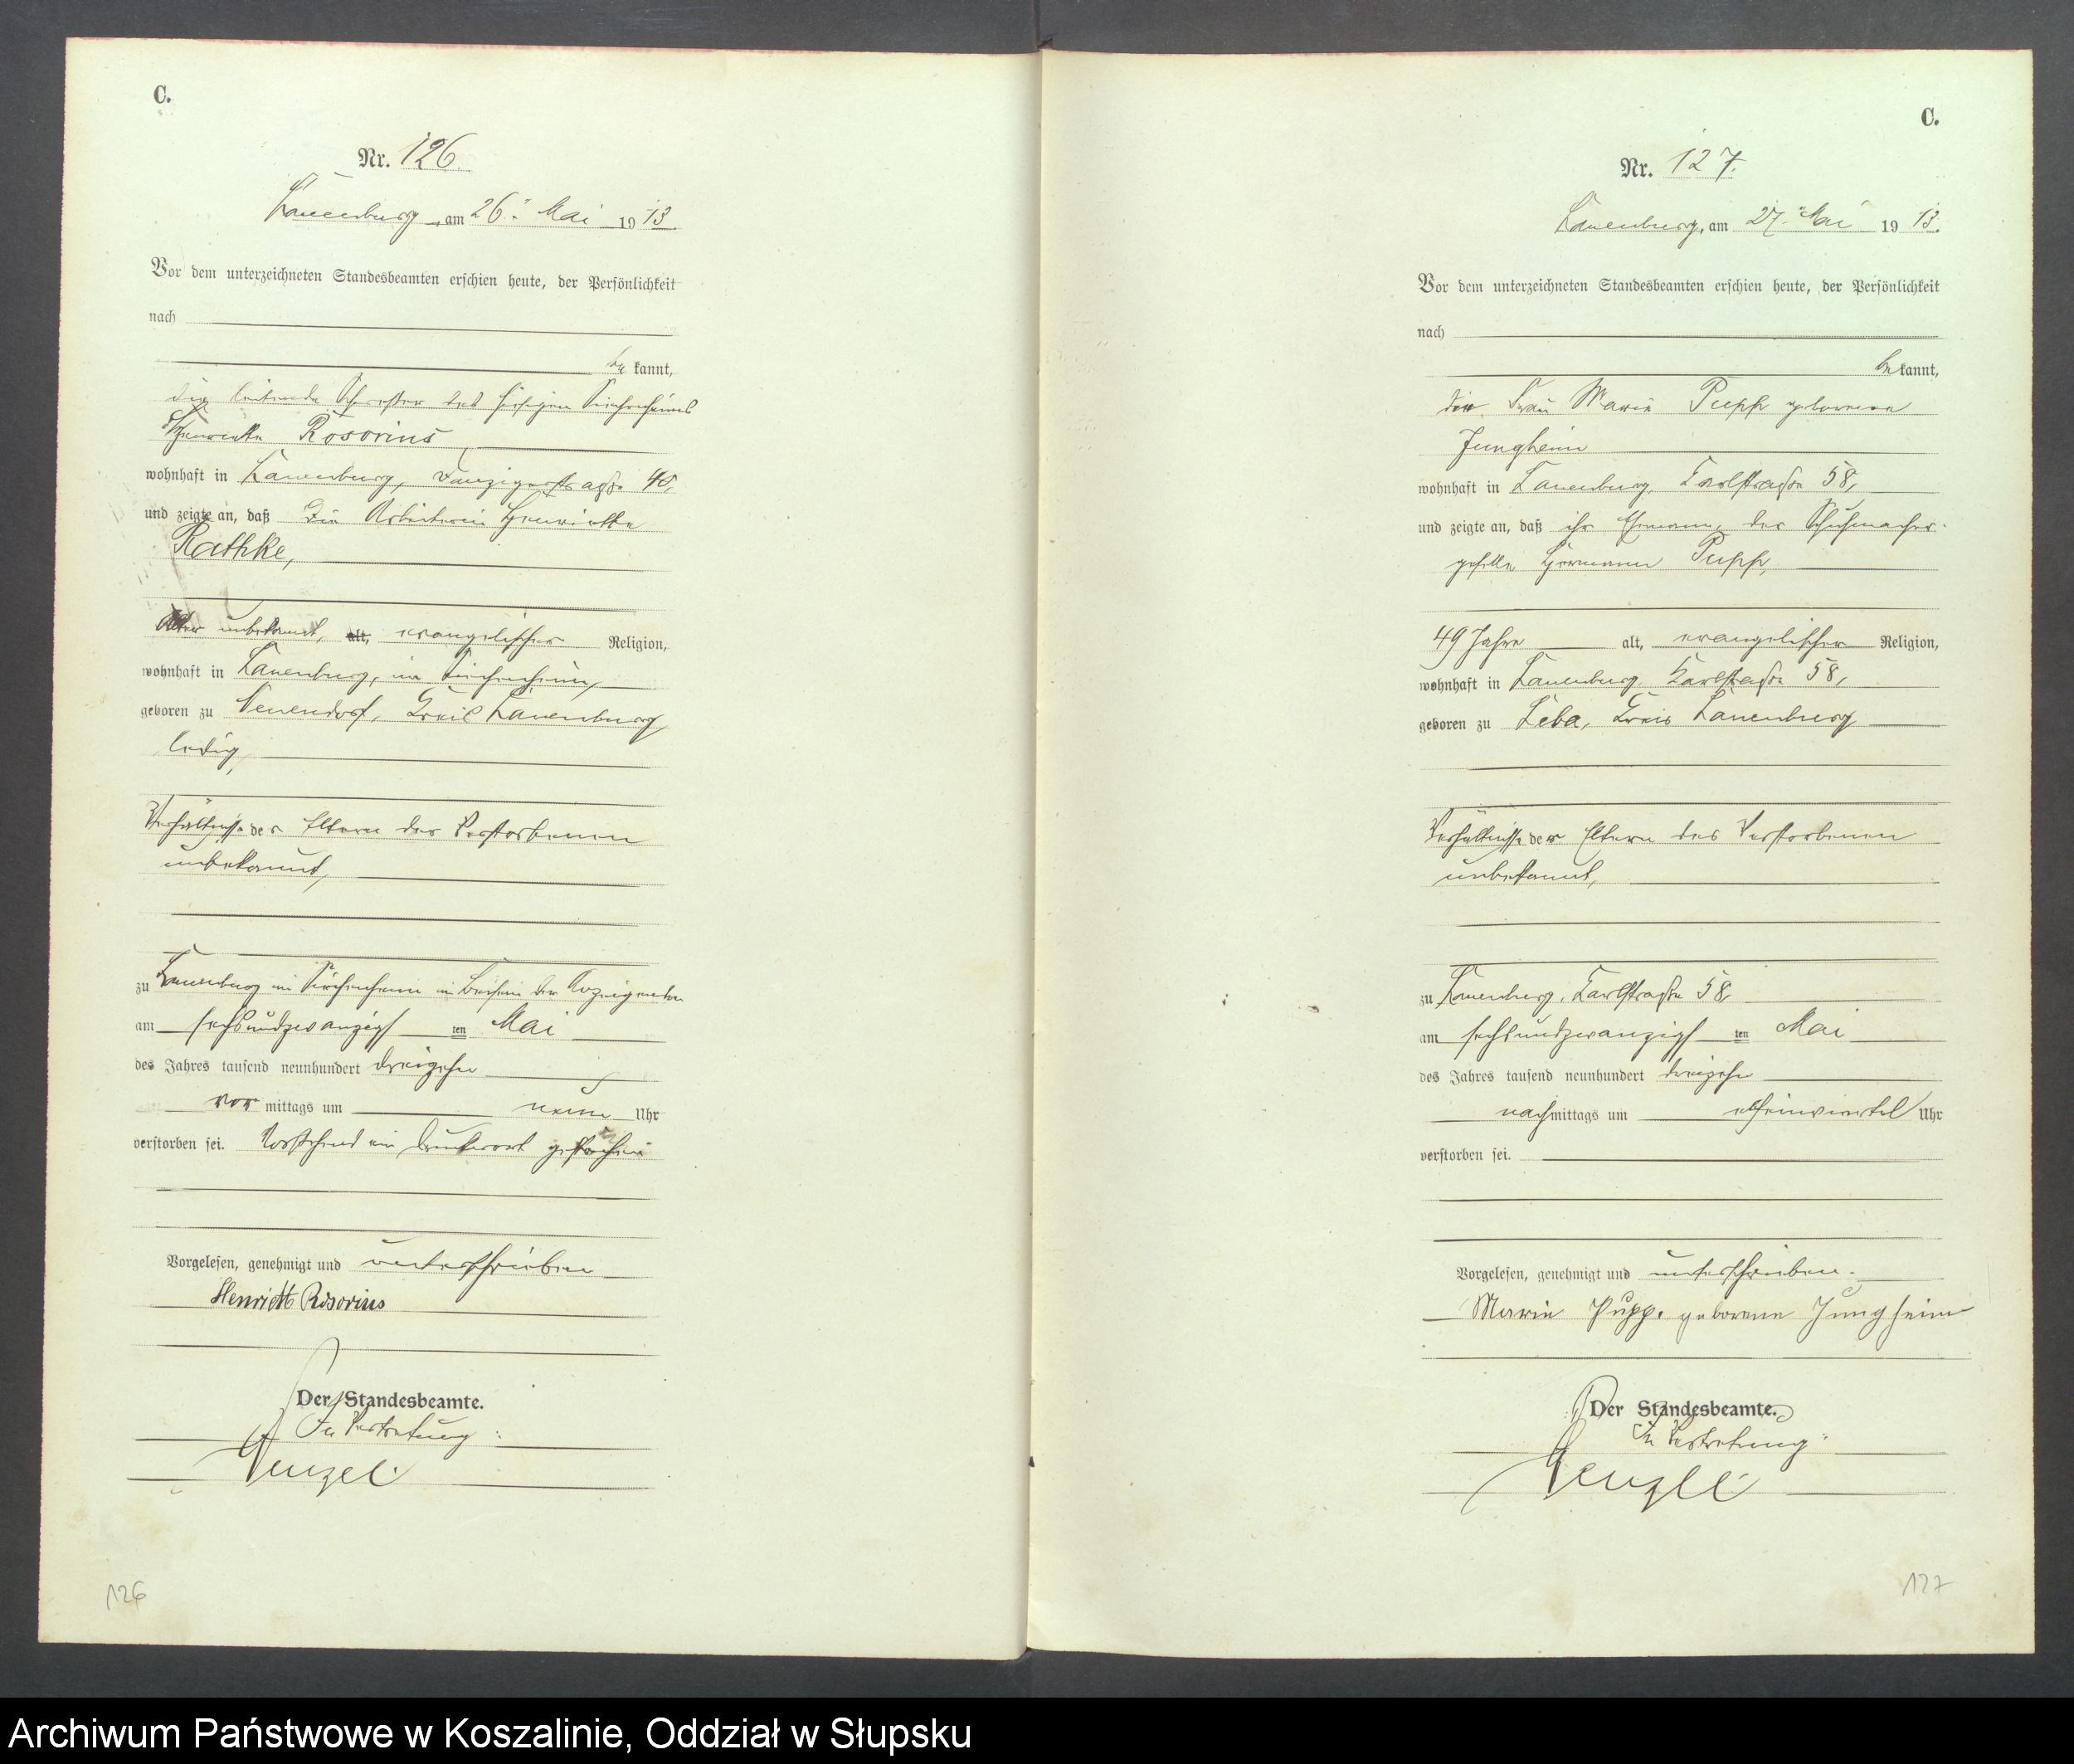 C.
Nr. 126.
Lauenburg, am 26. Mai 1913.
Vor dem unterzeichneten Standesbeamten erschien heute, der Persönlichkeit
nach
be kannt,
die leitende Schwester des hiesigen Siechenheims
Henriette Rosorius
wohnhaft in Lauenburg, Danzigerstraße 40,
und zeigte an, daß die Arbeiterin Henriette
Rathke,
Alter unbekannt, alt, evangelischer Religion,
wohnhaft in Lauenburg, im Siechenheim,
geboren zu Neuendorf, Kreis Lauenburg
ledig,
Verhältnisse der Eltern der Verstorbenen
unbekannt,
zu Lauenburg im Siechenheim in Beisein der Anzeigenden
am sechsundzwanzigs ten Mai
des Jahres tausend neunhundert dreizehn
vor mittags um neun Uhr
verstorben sei. Vorstehend ein Druckwort gestrichen
Vorgelesen, genehmigt und unterschrieben
Henriette Rosorius
Der Standesbeamte.
In Vertretung:
126
C.
Nr. 127.
Lauenburg, am 27. Mai 1913.
Vor dem unterzeichneten Standesbeamten erschien heute, der Persönlichkeit
nach
be kannt,
die Frau Marie Pupp geborene
Jungheim
wohnhaft in Lauenburg, Karlstraße 58,
und zeigte an, daß ihr Ehemann, der Schuhmacher-
geselle Hermann Pupp,
49 Jahre alt, evangelischer Religion,
wohnhaft in Lauenburg, Karlstraße 58,
geboren zu Leba, Kreis Lauenburg
Verhältnisse der Eltern des Verstorbenen
unbekannt,
zu Lauenburg, Karlstraße 58,
am sechsundzwanzigs ten Mai
des Jahres tausend neunhundert dreizehn
nach mittags um elfeinviertel Uhr
verstorben sei.
Vorgelesen, genehmigt und unterschrieben.
Marie Pupp. geborene Jungheim
Der Standesbeamte.
In Vertretung:
127
Archiwum Państwowe w Koszalinie, Oddział w Słupsku